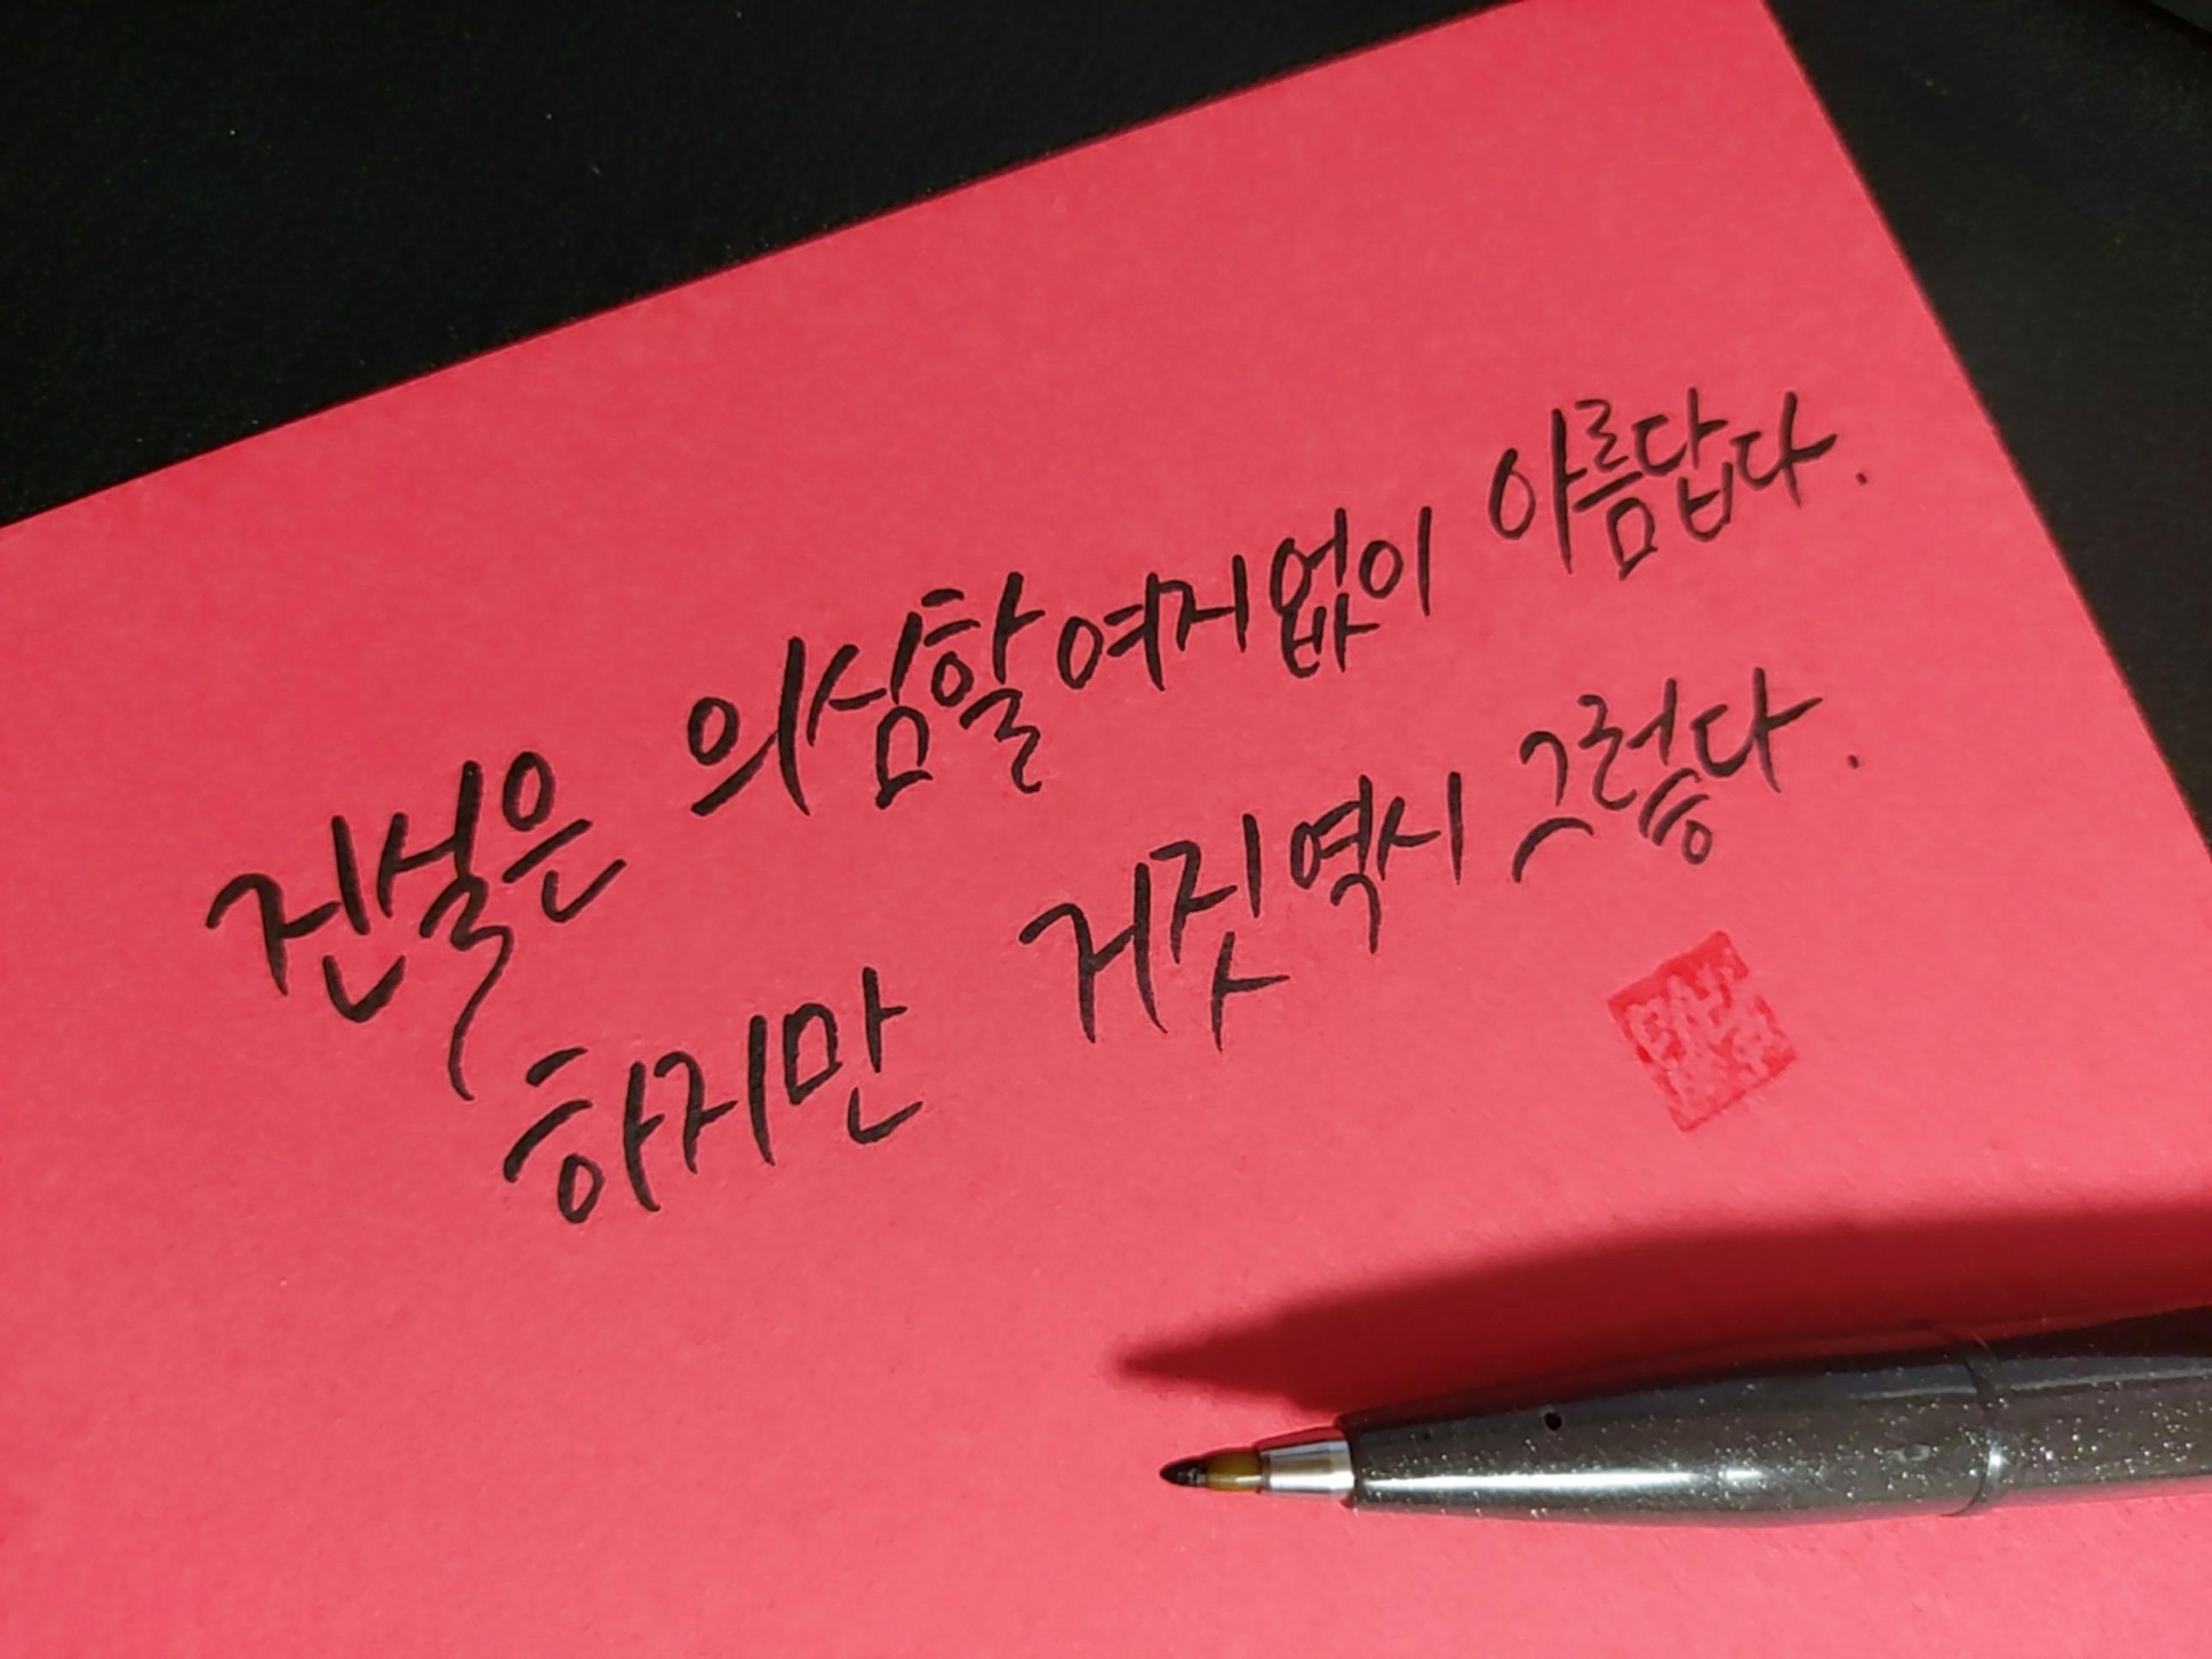 진실은 의심할 여지없이 아름답다.
하지만 거짓 역시 그렇다.